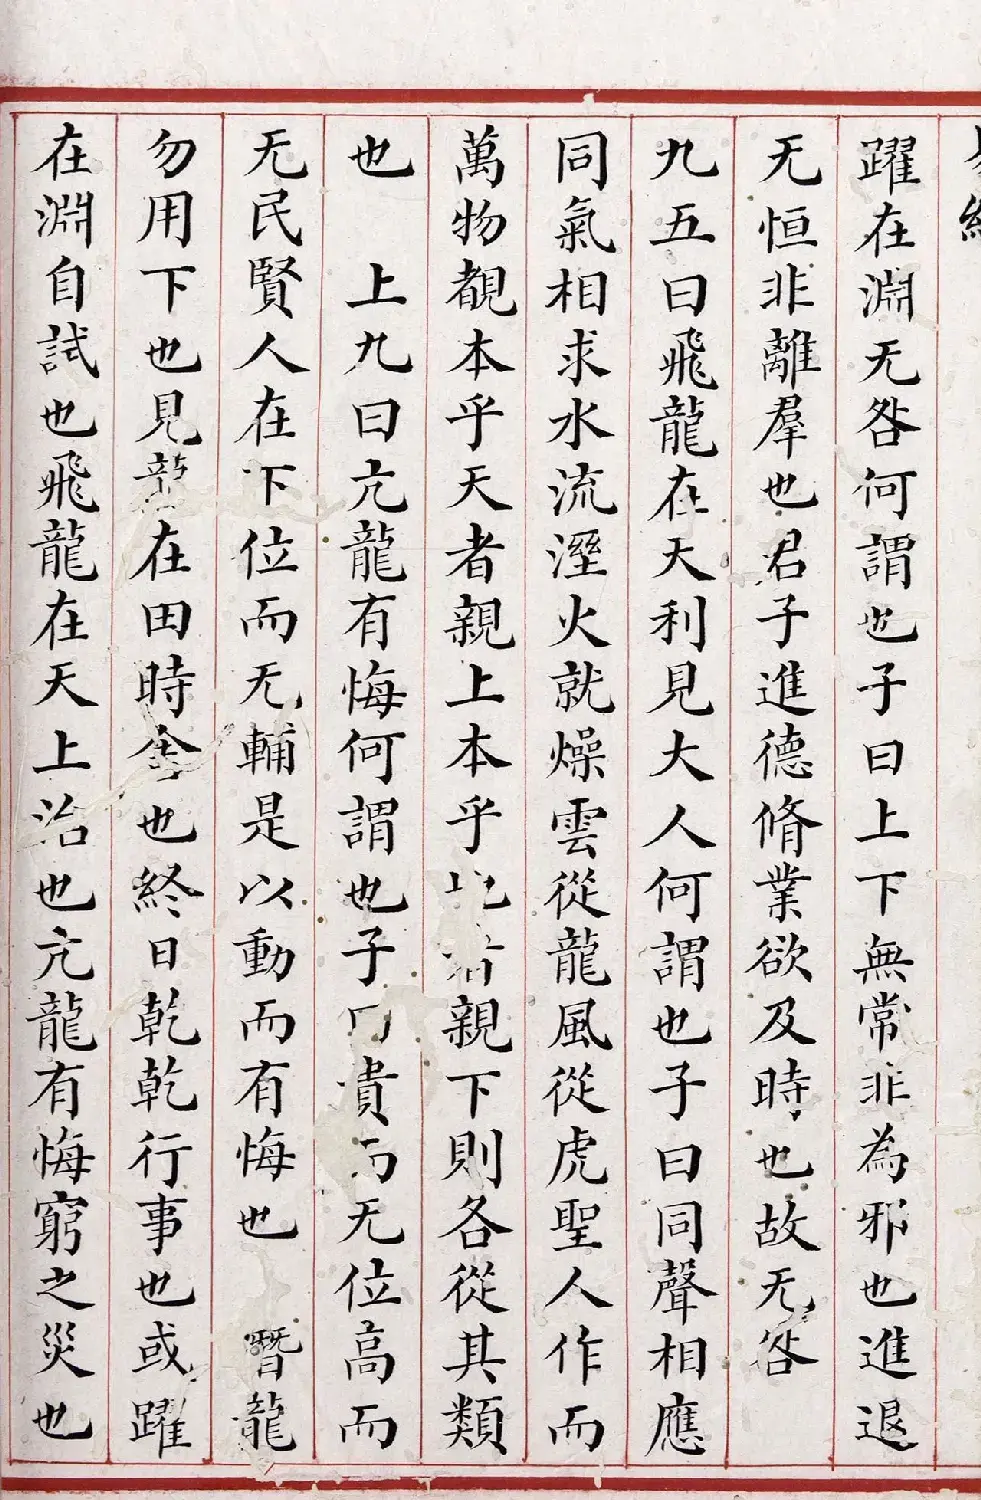 躍在淵无咎何謂也子曰上下無常非為邪也進退
无恒非離羣也君子進德脩業欲及時也故无咎
九五曰飛龍在天利見大人何謂也子曰同聲相應
同氣相求水流溼火就燥雲從龍風從虎聖人作而
萬物覩本乎天者親上本乎地者親下則各從其類
也 上九曰亢龍有悔何謂也子曰貴而无位高而
无民賢人在下位而无輔是以動而有悔也 潛龍
勿用下也見龍在田時舍也終日乾乾行事也或躍
在淵自試也飛龍在天上治也亢龍有悔窮之災也